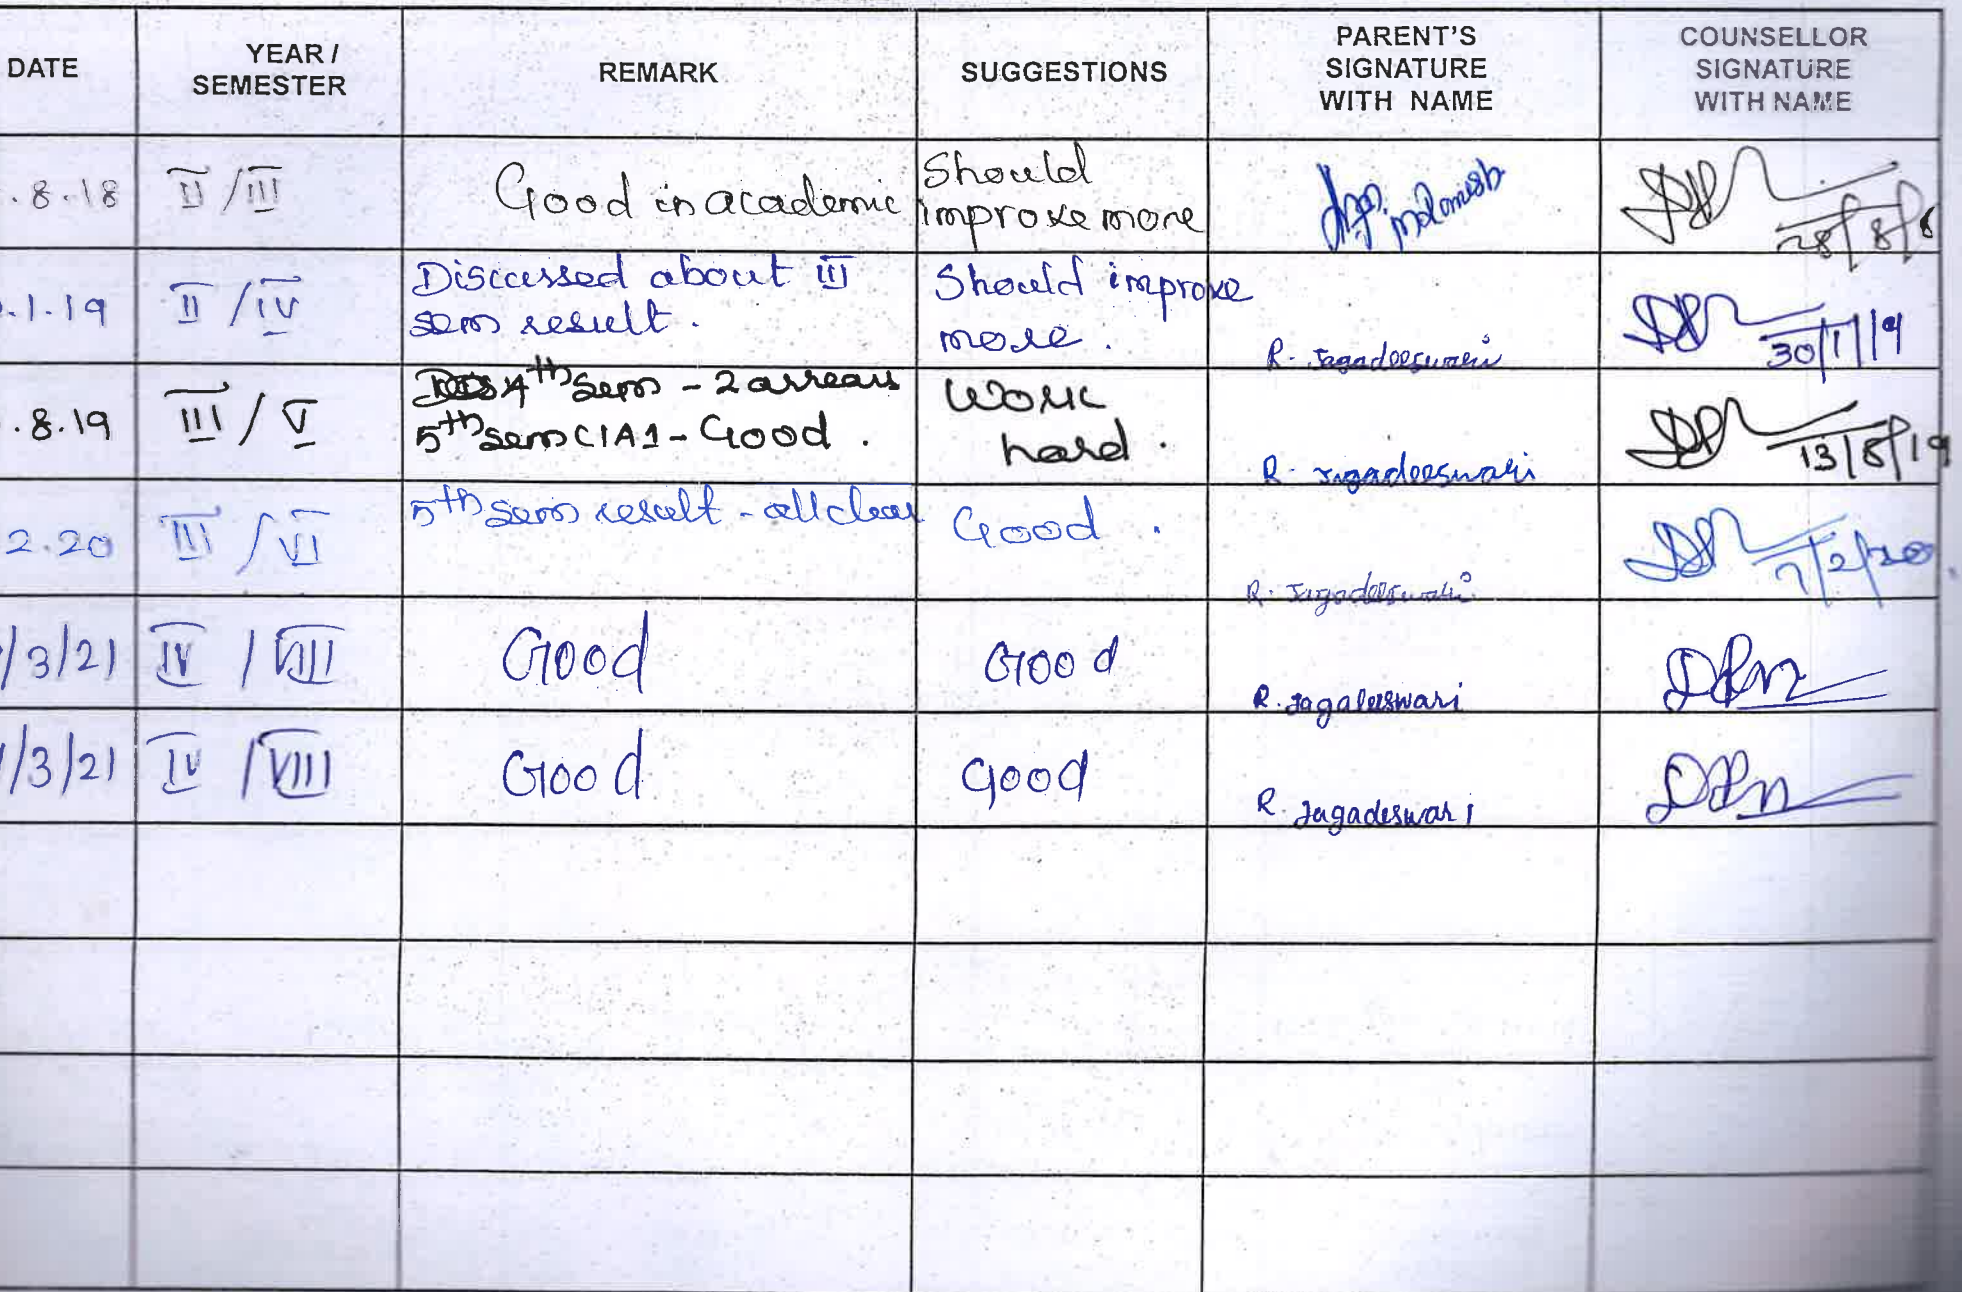 DATE
YEAR /
SEMESTER
REMARK
SUGGESTIONS
PARENT'S
SIGNATURE
WITH NAME
COUNSELLOR
SIGNATURE
WITH NAME
.8.18
II / III
Good in academic
Should
improve more
28/8/8
.1.19
II / IV
Discussed about III
sem result.
Should improve
more.
R. Jagadeeswari
30/1/19
.8.19
III / V
4th sem - 2 arrears
5th sem CIA1 - Good.
Work
hard.
R. Jagadeeswari
13/8/19
2.20
III / VI
5th sem result - all clear
Good.
R. Jagadeeswari
7/2/20.
/3/21
IV / VIII
Good
Good
R. Jagadeeswari
/3/21
IV / VIII
Good
Good
R. Jagadeswari